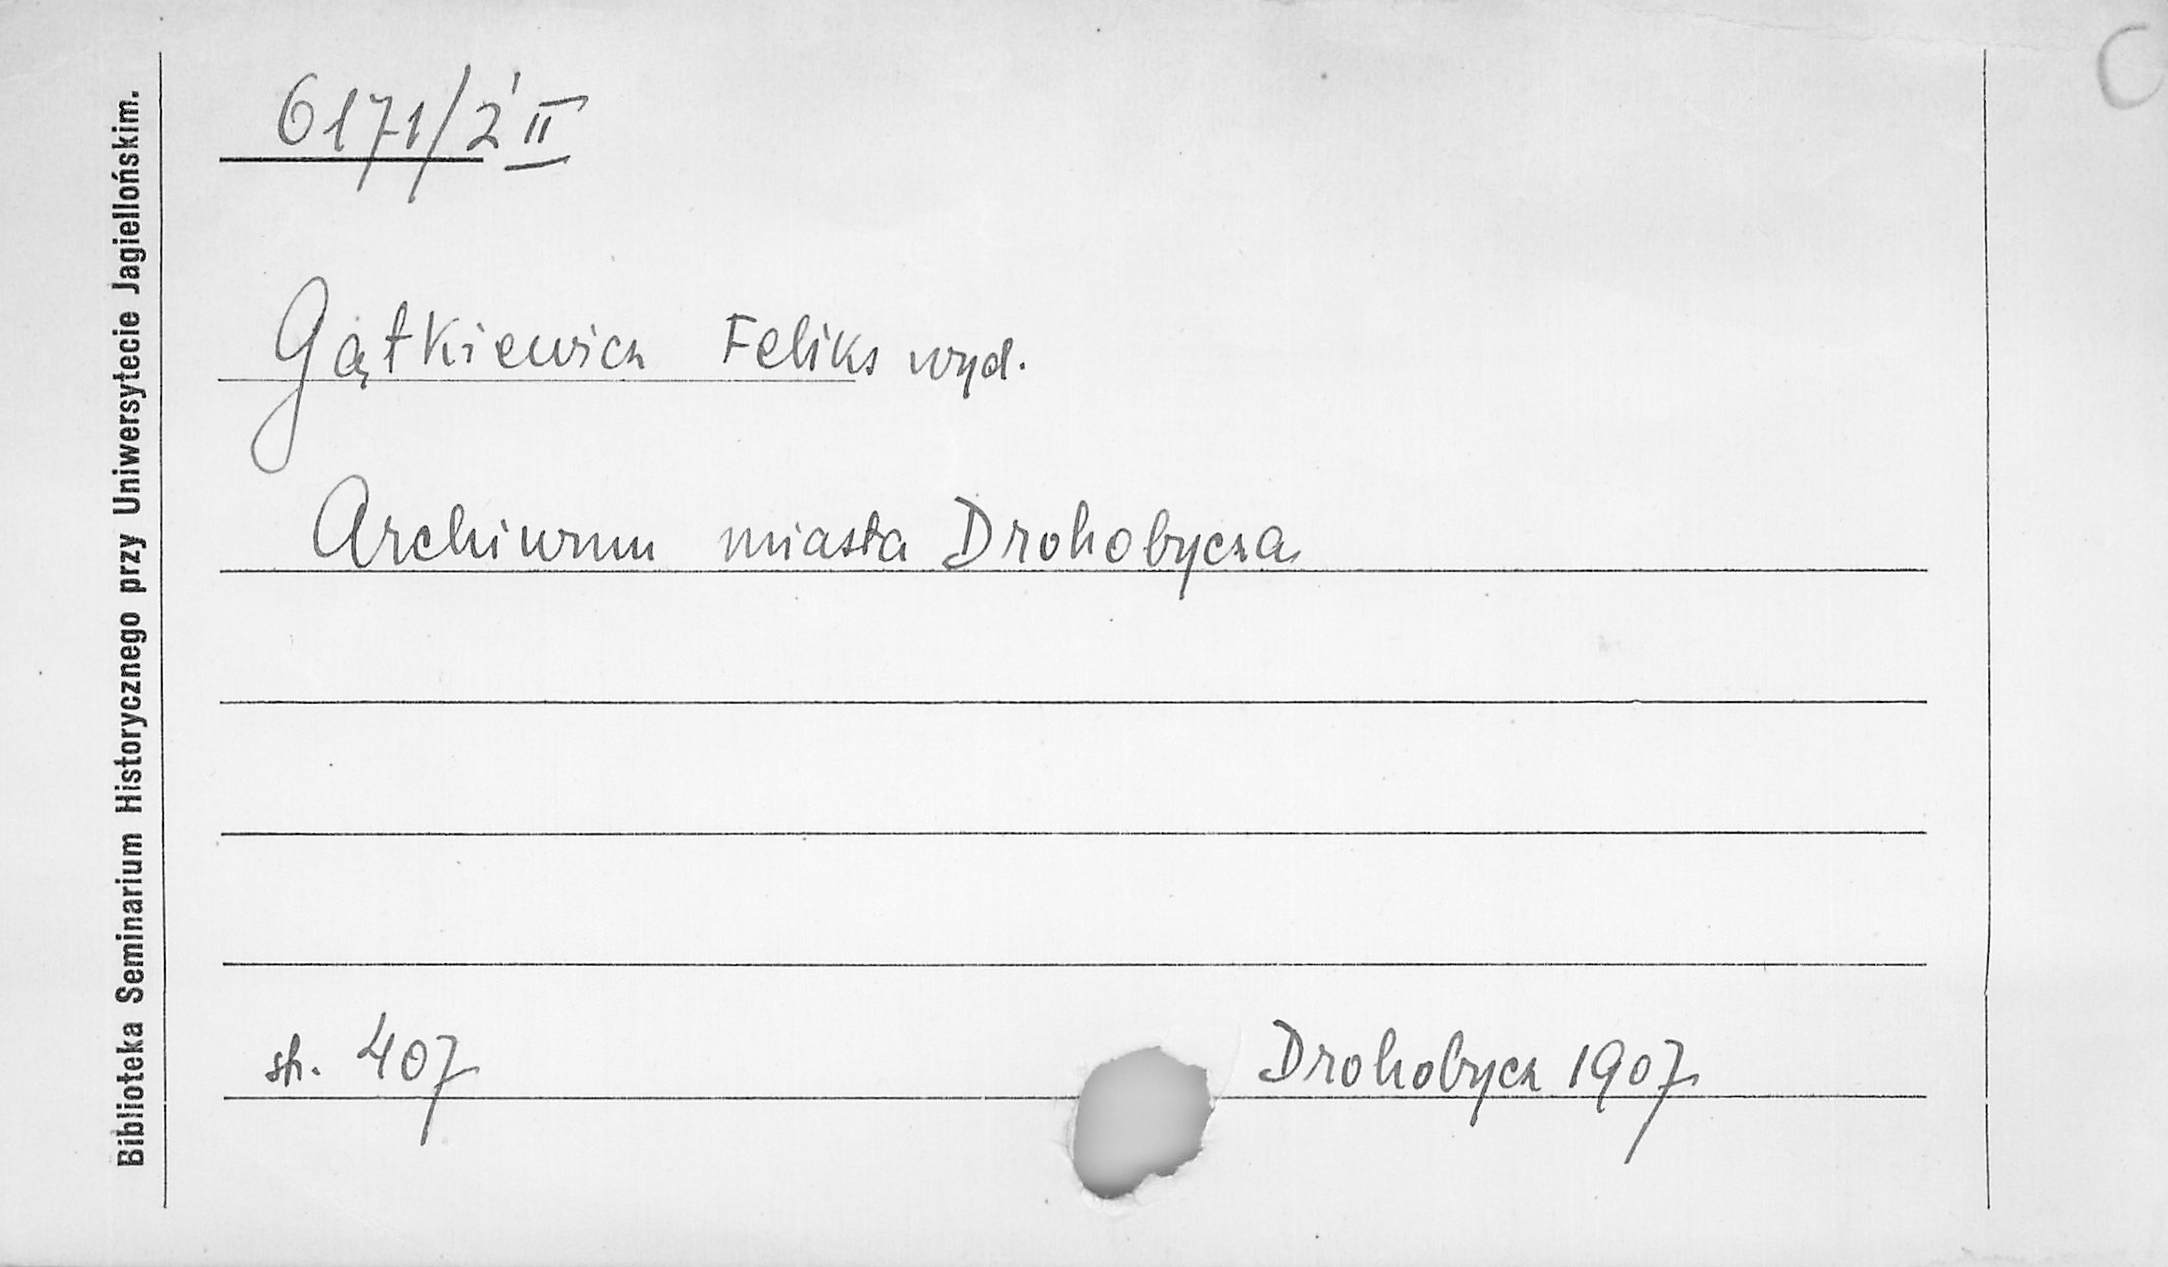 6171/2' II
Gątkiewicz Feliks wyd.
Archiwum miasta Drohobycza
str. 407
Drohobycz 1907
Biblioteka Seminarium Historycznego przy Uniwersytecie Jagiellońskim.
C